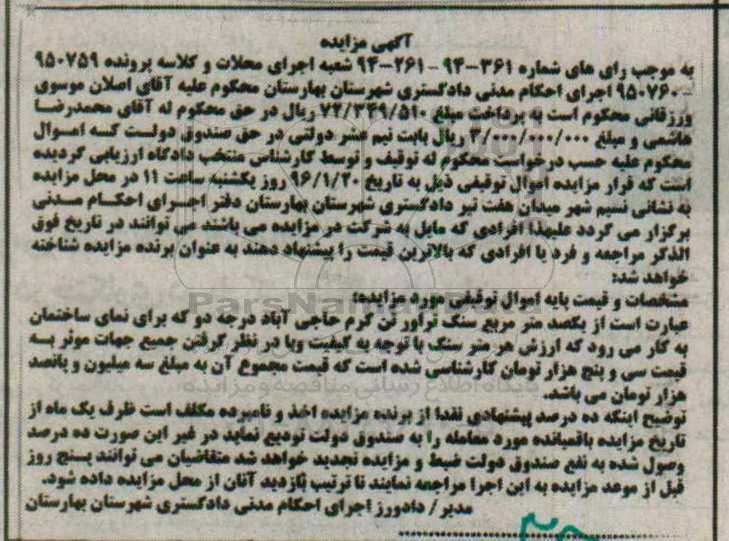 آگهی مزایده
به موجب رای های شماره ۳۶۱-۹۴ - ۲۶۱-۹۴ شعبه اجرای محلات و کلاسه پرونده ۹۵۰۷۵۹
- ۹۵۰۷۶۰ اجرای احکام مدنی دادگستری شهرستان بهارستان محکوم علیه آقای اصلان موسوی
ورزقانی محکوم است به پرداخت مبلغ ۷۲/۳۴۹/۵۱۰ ریال در حق محکوم له آقای محمدرضا
هاشمی و مبلغ ۳/۰۰۰/۰۰۰/۰۰۰ ریال بابت نیم عشر دولتی در حق صندوق دولت که اموال
محکوم علیه حسب درخواست محکوم له توقیف و توسط کارشناس منتخب دادگاه ارزیابی گردیده
است که قرار مزایده اموال توقیفی ذیل به تاریخ ۹۶/۱/۲۰ روز یکشنبه ساعت ۱۱ در محل مزایده
به نشانی نسیم شهر میدان هفت تیر دادگستری شهرستان بهارستان دفتر اجرای احکام مدنی
برگزار می گردد علیهذا افرادی که مایل به شرکت در مزایده می باشند می توانند در تاریخ فوق
الذکر مراجعه و فرد یا افرادی که بالاترین قیمت را پیشنهاد دهند به عنوان برنده مزایده شناخته
خواهد شد:
مشخصات و قیمت پایه اموال توقیفی مورد مزایده:
عبارت است از یکصد متر مربع سنگ تراور تن کرم حاجی آباد درجه دو که برای نمای ساختمان
به کار می رود که ارزش هر متر سنگ با توجه به کیفیت وبا در نظر گرفتن جمیع جهات موثر به
قیمت سی و پنج هزار تومان کارشناسی شده است که قیمت مجموع آن به مبلغ سه میلیون و پانصد
هزار تومان می باشد.
توضیح اینکه ده درصد پیشنهادی نقدا از برنده مزایده اخذ و نامبرده مکلف است ظرف یک ماه از
تاریخ مزایده باقیمانده مورد معامله را به صندوق دولت تودیع نماید در غیر این صورت ده درصد
وصول شده به نفع صندوق دولت ضبط و مزایده تجدید خواهد شد متقاضیان می توانند پنج روز
قبل از موعد مزایده به این اجرا مراجعه نمایند تا ترتیب بازدید آنان از محل مزایده داده شود.
مدیر/ دادورز اجرای احکام مدنی دادگستری شهرستان بهارستان
ParsNamadData
پایگاه اطلاع رسانی مناقصه و مزایده